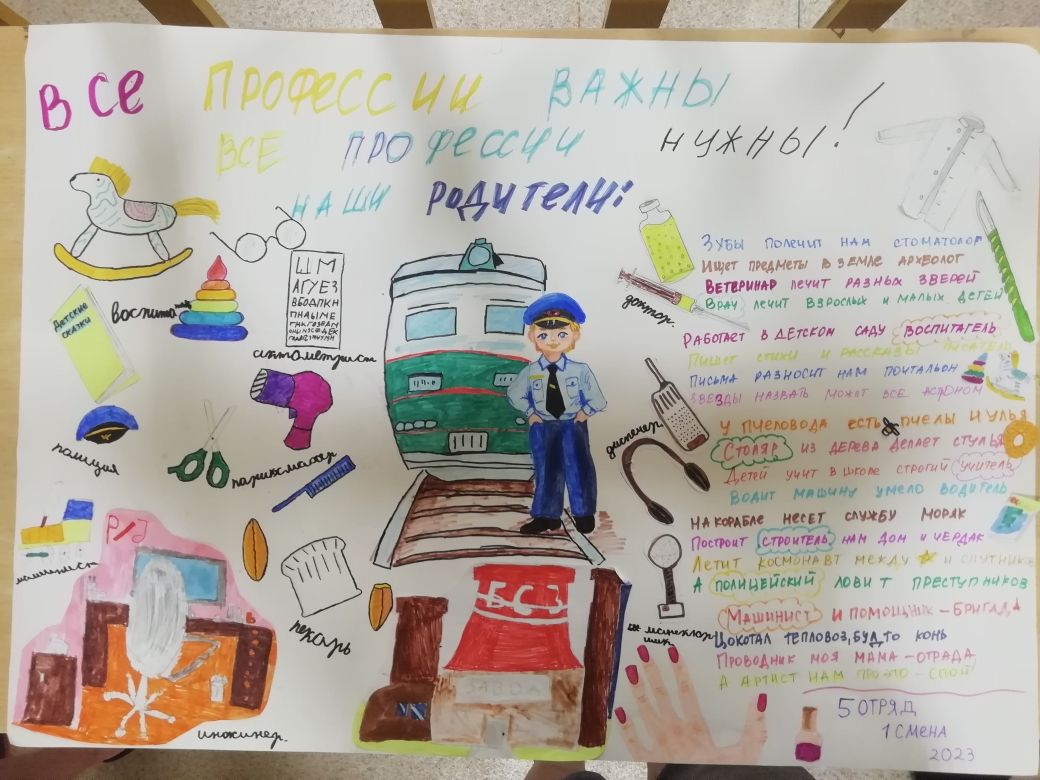 ВСЕ ПРОФЕССИИ ВАЖНЫ
ВСЕ ПРОФЕССИИ НУЖНЫ!
НАШИ РОДИТЕЛИ:
ЗУБЫ ПОЛЕЧИТ НАМ СТОМАТОЛОГ
ИЩЕТ ПРЕДМЕТЫ В ЗЕМЛЕ АРХЕОЛОГ
ВЕТЕРИНАР ЛЕЧИТ РАЗНЫХ ЗВЕРЕЙ
ВРАЧ ЛЕЧИТ ВЗРОСЛЫХ И МАЛЫХ ДЕТЕЙ
РАБОТАЕТ В ДЕТСКОМ САДУ ВОСПИТАТЕЛЬ
ПИШЕТ СТИХИ И РАССКАЗЫ ПИСАТЕЛЬ
ПИСЬМА РАЗНОСИТ НАМ ПОЧТАЛЬОН
ЗВЕЗДЫ НАЗВАТЬ МОЖЕТ ВСЕ АСТРОНОМ
У ПЧЕЛОВОДА ЕСТЬ ПЧЕЛЫ И УЛЬЯ
СТОЛЯР ИЗ ДЕРЕВА ДЕЛАЕТ СТУЛЬЯ
ДЕТЕЙ УЧИТ В ШКОЛЕ СТРОГИЙ УЧИТЕЛЬ
ВОДИТ МАШИНУ УМЕЛО ВОДИТЕЛЬ
НА КОРАБЛЕ НЕСЕТ СЛУЖБУ МОРЯК
ПОСТРОИТ СТРОИТЕЛЬ НАМ ДОМ И ЧЕРДАК
ЛЕТИТ КОСМОНАВТ МЕЖДУ И СПУТНИКОВ
А ПОЛИЦЕЙСКИЙ ЛОВИТ ПРЕСТУПНИКОВ
МАШИНИСТ И ПОМОЩНИК - БРИГАДА
ЦОКОТАЛ ТЕПЛОВОЗ, БУДТО КОНЬ
ПРОВОДНИК МОЯ МАМА - ОТРАДА
А АРТИСТ НАМ ПРО ЭТО - СПОЙ
5 ОТРЯД
1 СМЕНА
2023
Детские сказки
ШМ
доктор.
оптометрист
полиция
парикмахер
пекарь
инжинер.
Р/J
БСЗ